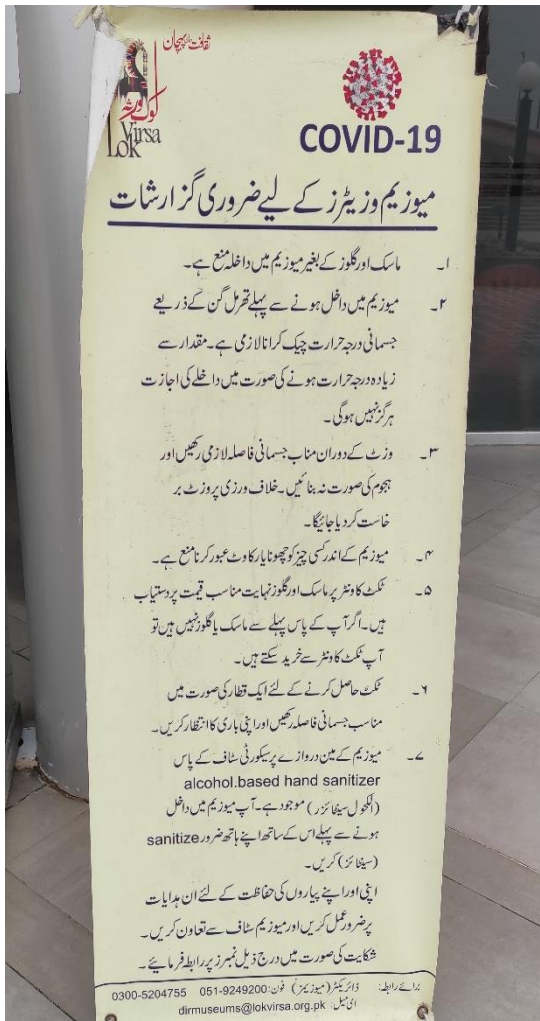 ثقافت ہماری پہچان
لوک ورثہ
Lok Virsa
COVID-19
میوزیم وزیٹرز کے لیے ضروری گزارشات
۱۔ ماسک اور گلوز کے بغیر میوزیم میں داخلہ منع ہے۔
۲۔ میوزیم میں داخل ہونے سے پہلے تھرمل گن کے ذریعے
جسمانی درجہ حرارت چیک کرانا لازمی ہے۔ مقدار سے
زیادہ درجہ حرارت ہونے کی صورت میں داخلے کی اجازت
ہرگز نہیں ہوگی۔
۳۔ وزٹ کے دوران مناب جسمانی فاصلہ لازمی رکھیں اور
ہجوم کی صورت نہ بنائیں۔ خلاف ورزی پر وزٹ بر
خاست کر دیا جائیگا۔
۴۔ میوزیم کے اندر کسی چیز کو چھونا یا رکاوٹ عبور کرنا منع ہے۔
۵۔ ٹکٹ کاونٹر پر ماسک اور گلوز نہایت مناسب قیمت پر دستیاب
ہیں۔ اگر آپ کے پاس پہلے سے ماسک یا گلوز نہیں ہیں تو
آپ ٹکٹ کاونٹر سے خرید سکتے ہیں۔
۶۔ ٹکٹ حاصل کرنے کے لئے ایک قطار کی صورت میں
مناسب جسمانی فاصلہ رکھیں اور اپنی باری کا انتظار کریں۔
۷۔ میوزیم کے مین دروازے پر سیکورٹی سٹاف کے پاس
alcohol.based hand sanitizer
(الکحول سینٹائزر) موجود ہے۔ آپ میوزیم میں داخل
ہونے سے پہلے اس کے ساتھ اپنے ہاتھ ضرور sanitize
(سینٹائز) کریں۔
اپنی اور اپنے پیاروں کی حفاظت کے لئے ان ہدایات
پر ضرور عمل کریں اور میوزیم سٹاف سے تعاون کریں۔
شکایت کی صورت میں درج ذیل نمبرز پر رابطہ فرمائیے۔
برائے رابطہ: ڈائریکٹر (میوزیمز) فون: 051-9249200 0300-5204755
ای میل: dirmuseums@lokvirsa.org.pk